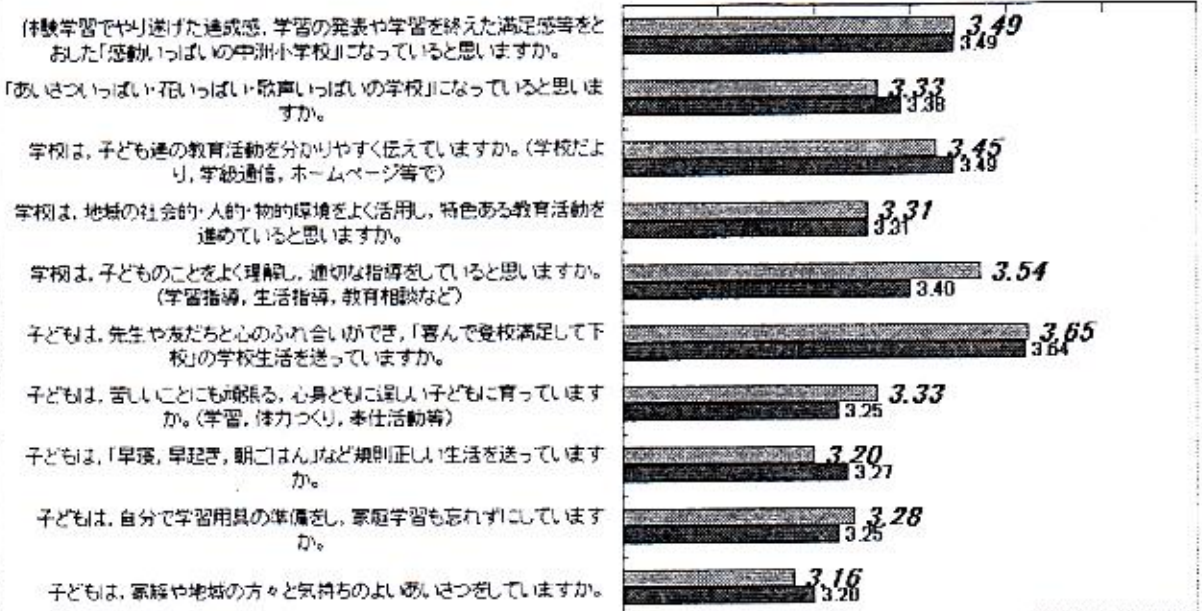 体験学習でやり遂げた達成感，学習の発表や学習を終えた満足感等をと
おした「感動いっぱいの中洲小学校」になっていると思いますか。
3.49
3.49
「あいさついっぱい・花いっぱい・歌声いっぱいの学校」になっていると思いま
すか。
3.33
3.38
学校は，子ども達の教育活動を分かりやすく伝えていますか。（学校だよ
り，学級通信，ホームページ等で）
3.45
3.49
学校は，地域の社会的・人的・物的環境をよく活用し，特色ある教育活動を
進めていると思いますか。
3.31
3.31
学校は，子どものことをよく理解し，適切な指導をしていると思いますか。
（学習指導，生活指導，教育相談など）
3.54
3.40
子どもは，先生や友だちと心のふれ合いができ，「喜んで登校満足して下
校」の学校生活を送っていますか。
3.65
3.64
子どもは，苦しいことにも頑張る，心身ともに逞しい子どもに育っています
か。（学習，体力つくり，奉仕活動等）
3.33
3.25
子どもは，「早寝，早起き，朝ごはん」など規則正しい生活を送っています
か。
3.20
3.27
子どもは，自分で学習用具の準備をし，家庭学習も忘れずにしています
か。
3.28
3.25
子どもは，家族や地域の方々と気持ちのよいあいさつをしていますか。
3.16
3.20